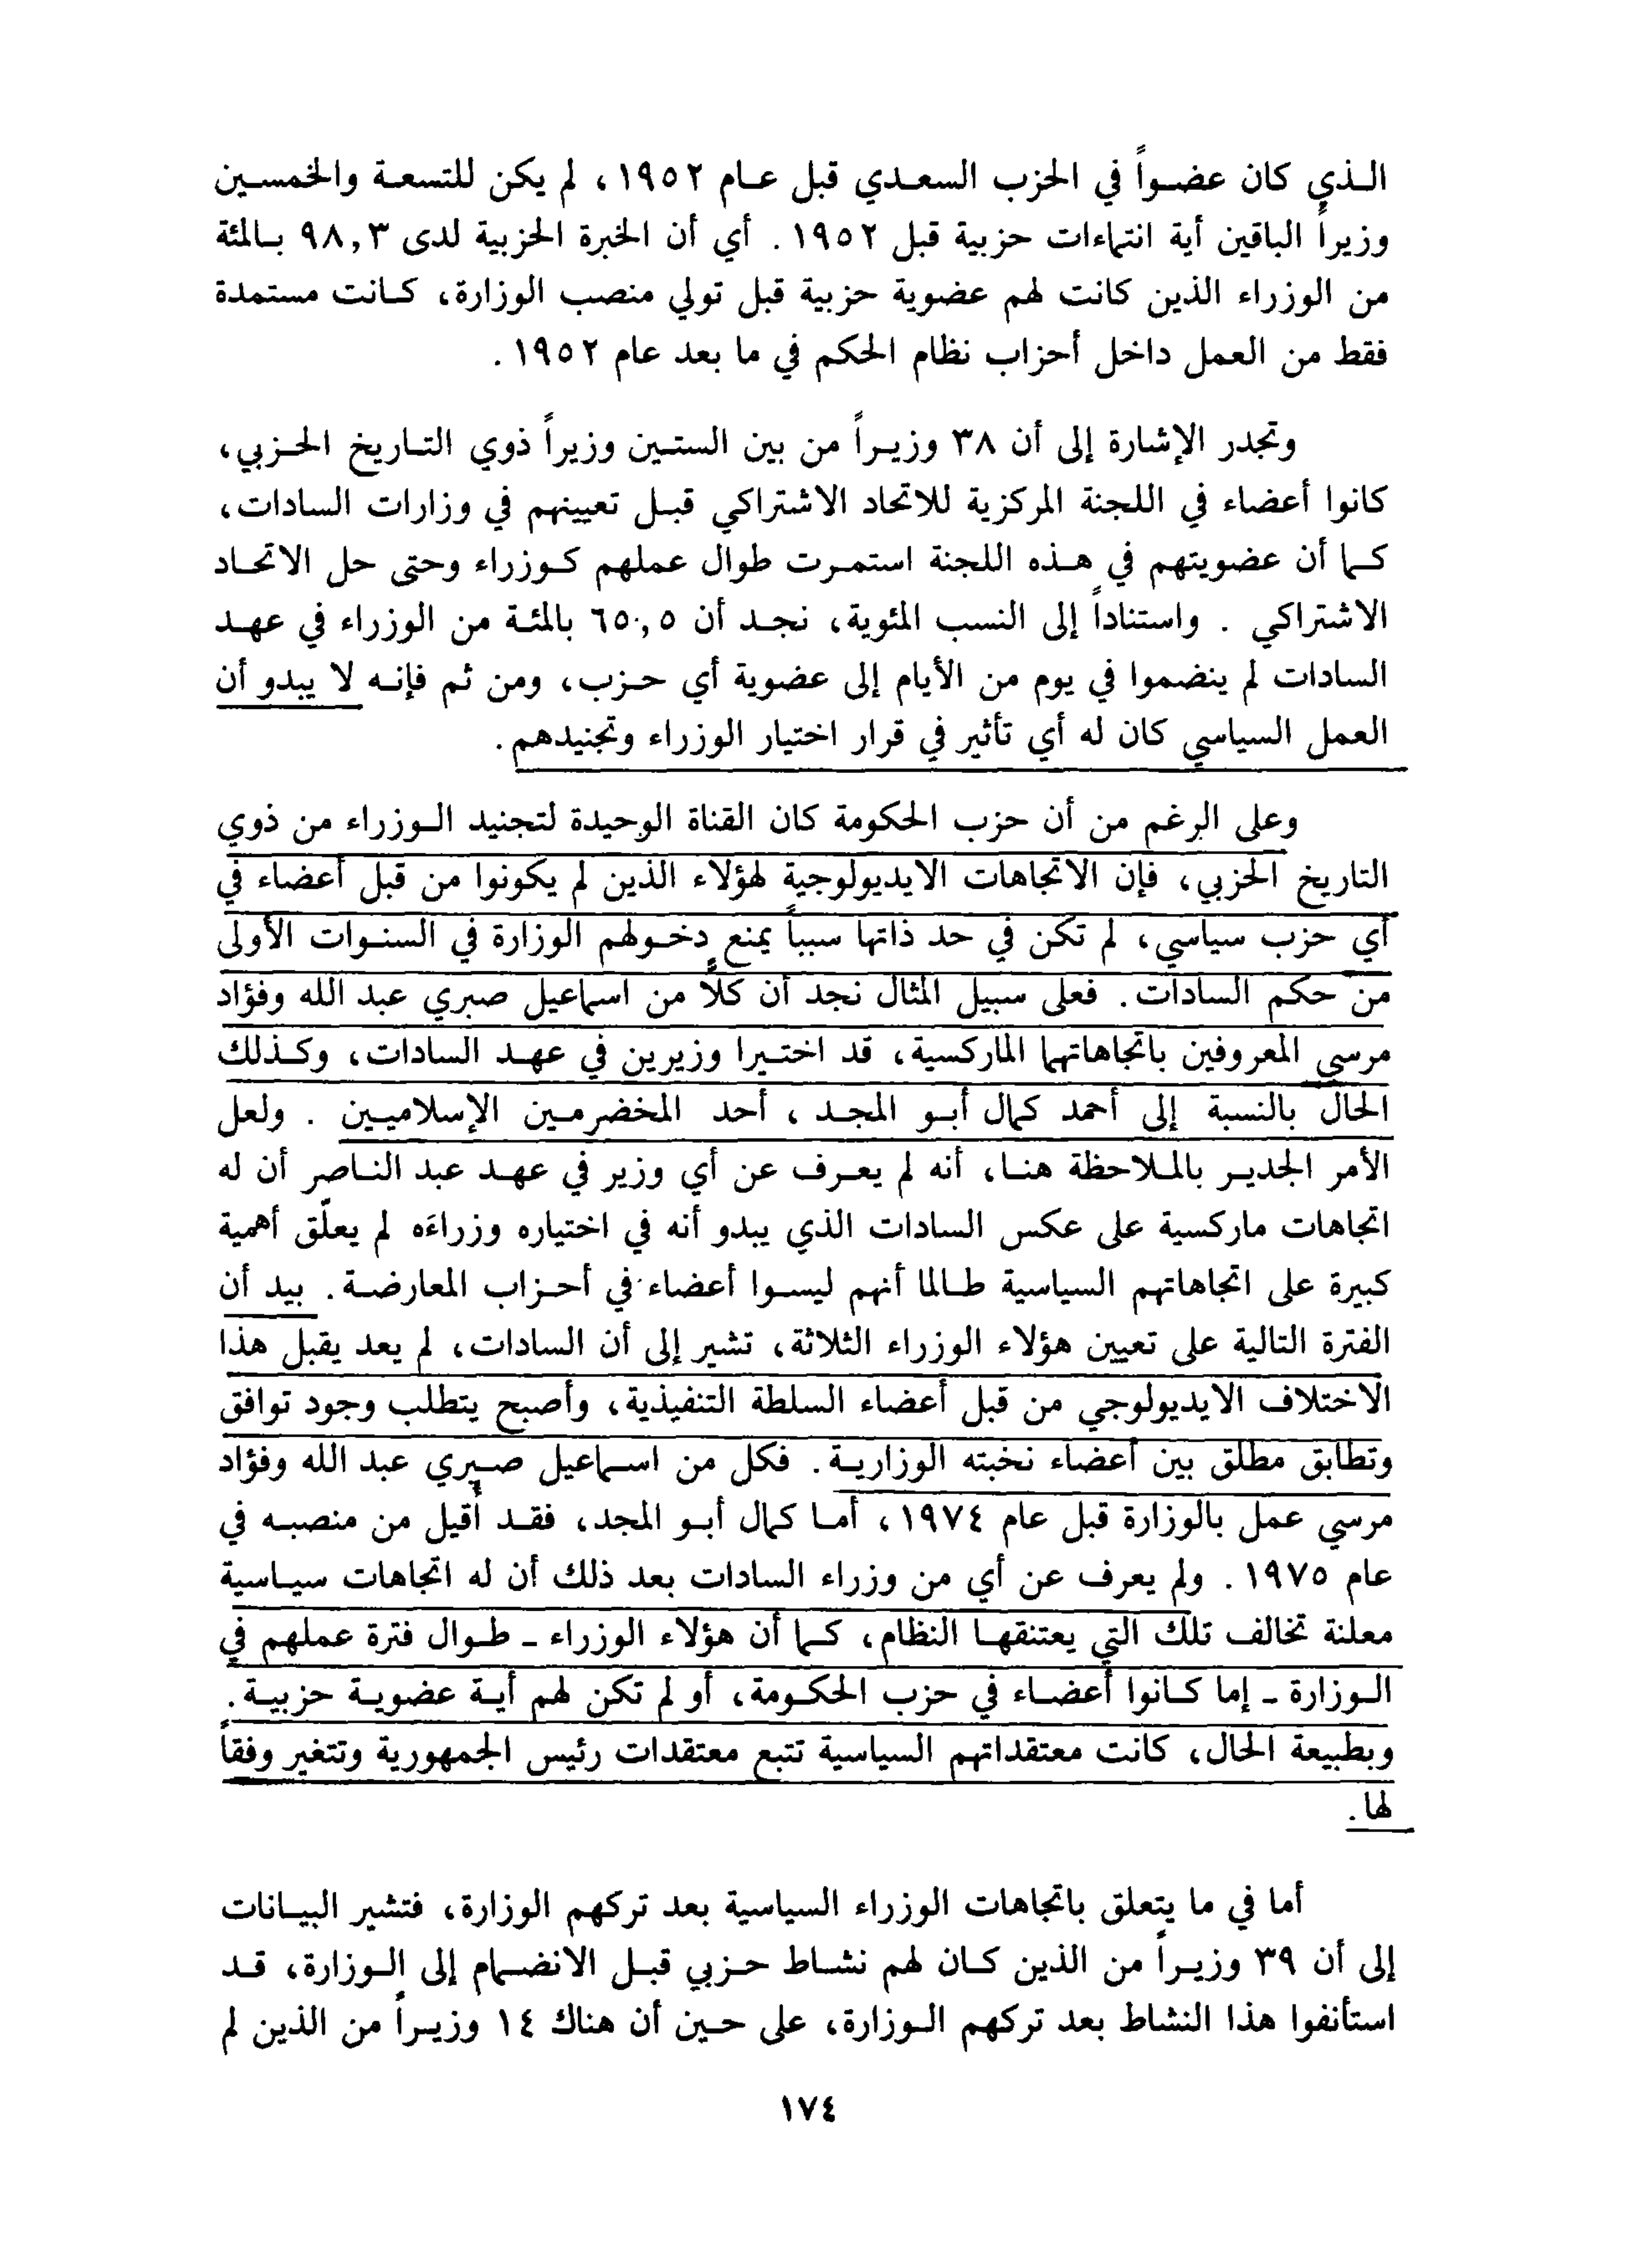 الذي كان عضواً في الحزب السعدي قبل عام ١٩٥٢، لم يكن للتسعة والخمسين
وزيراً الباقين أية انتماءات حزبية قبل ١٩٥٢. أي أن الخبرة الحزبية لدى ٩٨,٣ بالمئة
من الوزراء الذين كانت لهم عضوية حزبية قبل تولي منصب الوزارة، كانت مستمدة
فقط من العمل داخل أحزاب نظام الحكم في ما بعد عام ١٩٥٢.
وتجدر الإشارة إلى أن ٣٨ وزيراً من بين الستين وزيراً ذوي التاريخ الحزبي،
كانوا أعضاء في اللجنة المركزية للاتحاد الاشتراكي قبل تعيينهم في وزارات السادات،
كما أن عضويتهم في هذه اللجنة استمرت طوال عملهم كوزراء وحتى حل الاتحاد
الاشتراكي. واستناداً إلى النسب المئوية، نجد أن ٦٥,٥ بالمئة من الوزراء في عهد
السادات لم ينضموا في يوم من الأيام إلى عضوية أي حزب، ومن ثم فإنه لا يبدو أن
العمل السياسي كان له أي تأثير في قرار اختيار الوزراء وتجنيدهم.
وعلى الرغم من أن حزب الحكومة كان القناة الوحيدة لتجنيد الوزراء من ذوي
التاريخ الحزبي، فإن الاتجاهات الايديولوجية لهؤلاء الذين لم يكونوا من قبل أعضاء في
أي حزب سياسي، لم تكن في حد ذاتها سبباً يمنع دخولهم الوزارة في السنوات الأولى
من حكم السادات. فعلى سبيل المثال نجد أن كلاً من اسماعيل صبري عبد الله وفؤاد
مرسي المعروفين باتجاهاتهما الماركسية، قد اختيرا وزيرين في عهد السادات، وكذلك
الحال بالنسبة إلى أحمد كمال أبو المجد، أحد المخضرمين الإسلاميين. ولعل
الأمر الجدير بالملاحظة هنا، أنه لم يعرف عن أي وزير في عهد عبد الناصر أن له
اتجاهات ماركسية على عكس السادات الذي يبدو أنه في اختياره وزراءَه لم يعلّق أهمية
كبيرة على اتجاهاتهم السياسية طالما أنهم ليسوا أعضاء في أحزاب المعارضة. بيد أن
الفترة التالية على تعيين هؤلاء الوزراء الثلاثة، تشير إلى أن السادات، لم يعد يقبل هذا
الاختلاف الايديولوجي من قبل أعضاء السلطة التنفيذية، وأصبح يتطلب وجود توافق
وتطابق مطلق بين أعضاء نخبته الوزارية. فكل من اسماعيل صبري عبد الله وفؤاد
مرسي عمل بالوزارة قبل عام ١٩٧٤، أما كمال أبو المجد، فقد أُقيل من منصبه في
عام ١٩٧٥. ولم يعرف عن أي من وزراء السادات بعد ذلك أن له اتجاهات سياسية
معلنة تخالف تلك التي يعتنقها النظام، كما أن هؤلاء الوزراء ـ طوال فترة عملهم في
الوزارة ـ إما كانوا أعضاء في حزب الحكومة، أو لم تكن لهم أية عضوية حزبية.
وبطبيعة الحال، كانت معتقداتهم السياسية تتبع معتقدات رئيس الجمهورية وتتغير وفقاً
لها.
أما في ما يتعلق باتجاهات الوزراء السياسية بعد تركهم الوزارة، فتشير البيانات
إلى أن ٣٩ وزيراً من الذين كان لهم نشاط حزبي قبل الانضمام إلى الوزارة، قد
استأنفوا هذا النشاط بعد تركهم الوزارة، على حين أن هناك ١٤ وزيراً من الذين لم
١٧٤